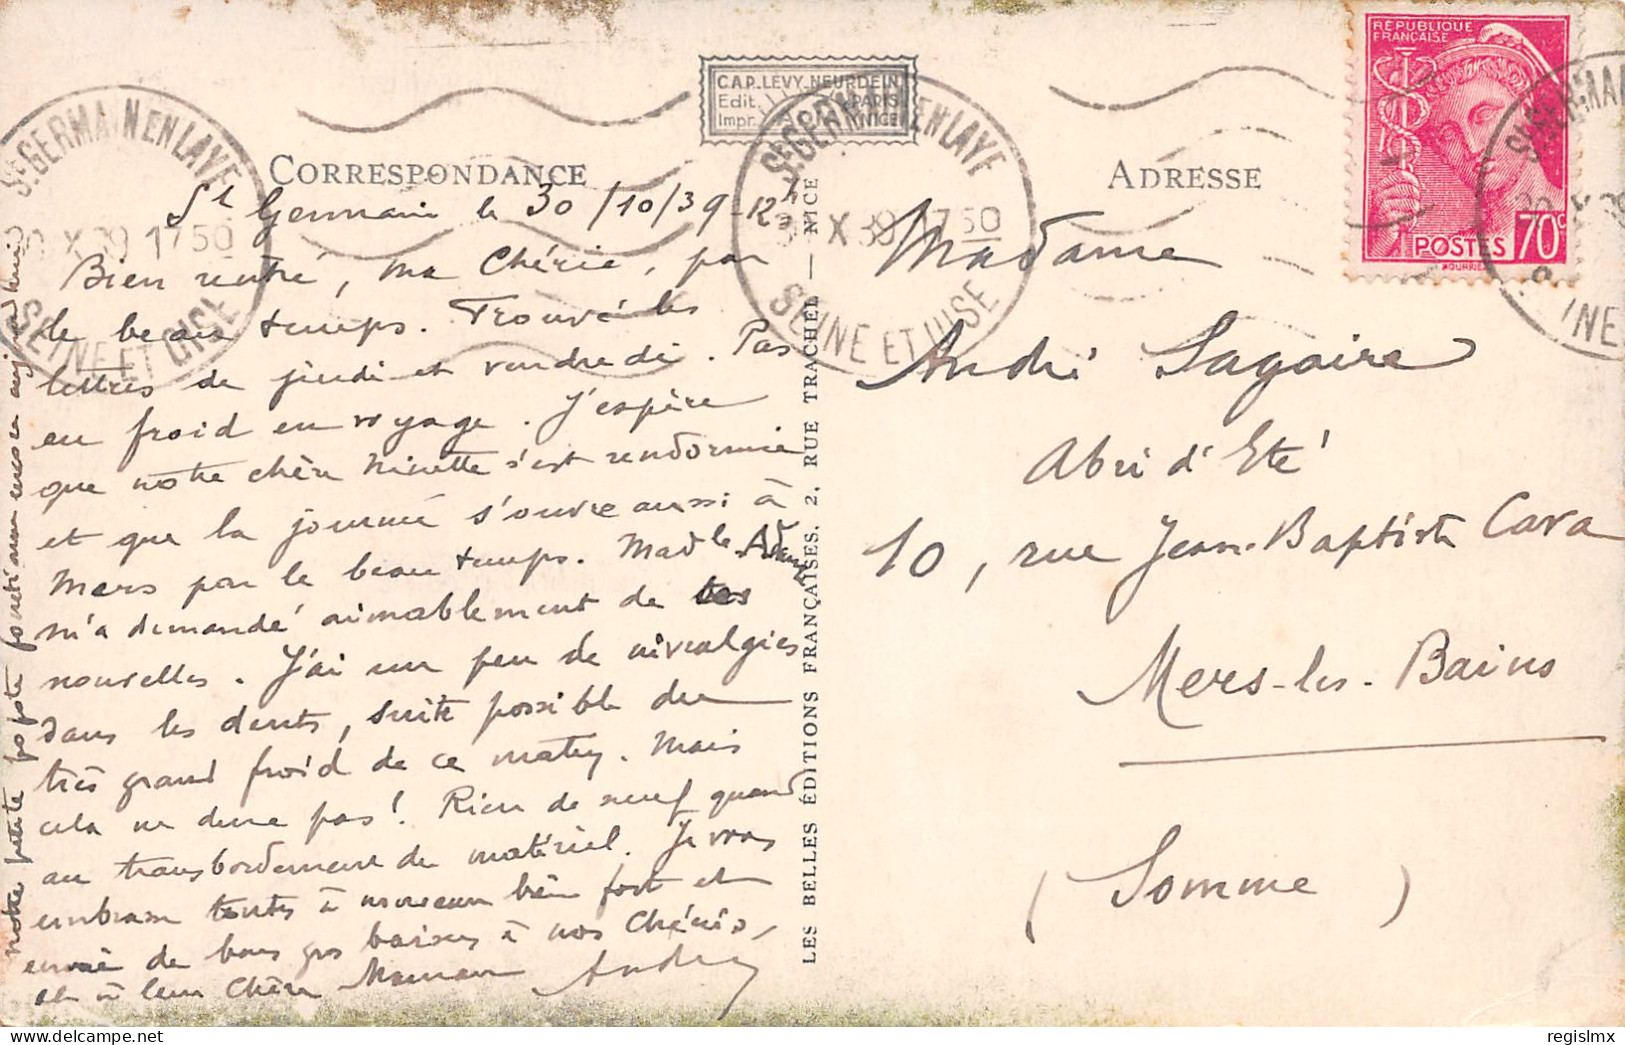 CAP. LEVY-NEURDEIN
Edit. PARIS
Impr. NICE
RÉPUBLIQUE
FRANÇAISE
POSTES 70c
ST GERMAIN EN LAYE
X 39 1750
SEINE ET OISE
ST GERMAIN EN LAYE
X 39 1750
SEINE ET OISE
CORRESPONDANCE
St Germain le 30/10/39 - 12h
Bien rentré, ma Chérie, par
le beau temps. Trouvé les
lettres de jeudi et vendredi. Pas
eu froid en voyage. J'espère
que notre chère Ninette s'est rendormie
et que la journée s'ouvre aussi à
Mers par le beau temps. Madlle
m'a demandé aimablement de tes
nouvelles. J'ai un peu de névralgies
dans les dents, suite possible du
très grand froid de ce matin. Mais
cela ne dure pas! Rien de neuf quand
au transbordement du matériel. Je vous
embrasse toutes à nouveau bien fort et
envoie de bons gros baisers à nos Chéries,
et à leur Chère Maman André
notre petite popote fonctionne encore aujourd'hui
LES BELLES ÉDITIONS FRANÇAISES. 2, RUE TRACHEL — NICE
ADRESSE
Madame
André Lagaire
Abri d'Eté
10, rue Jean-Baptiste Cava
Mers-les-Bains
(Somme)
ST GERMAIN
X 39
regislmx